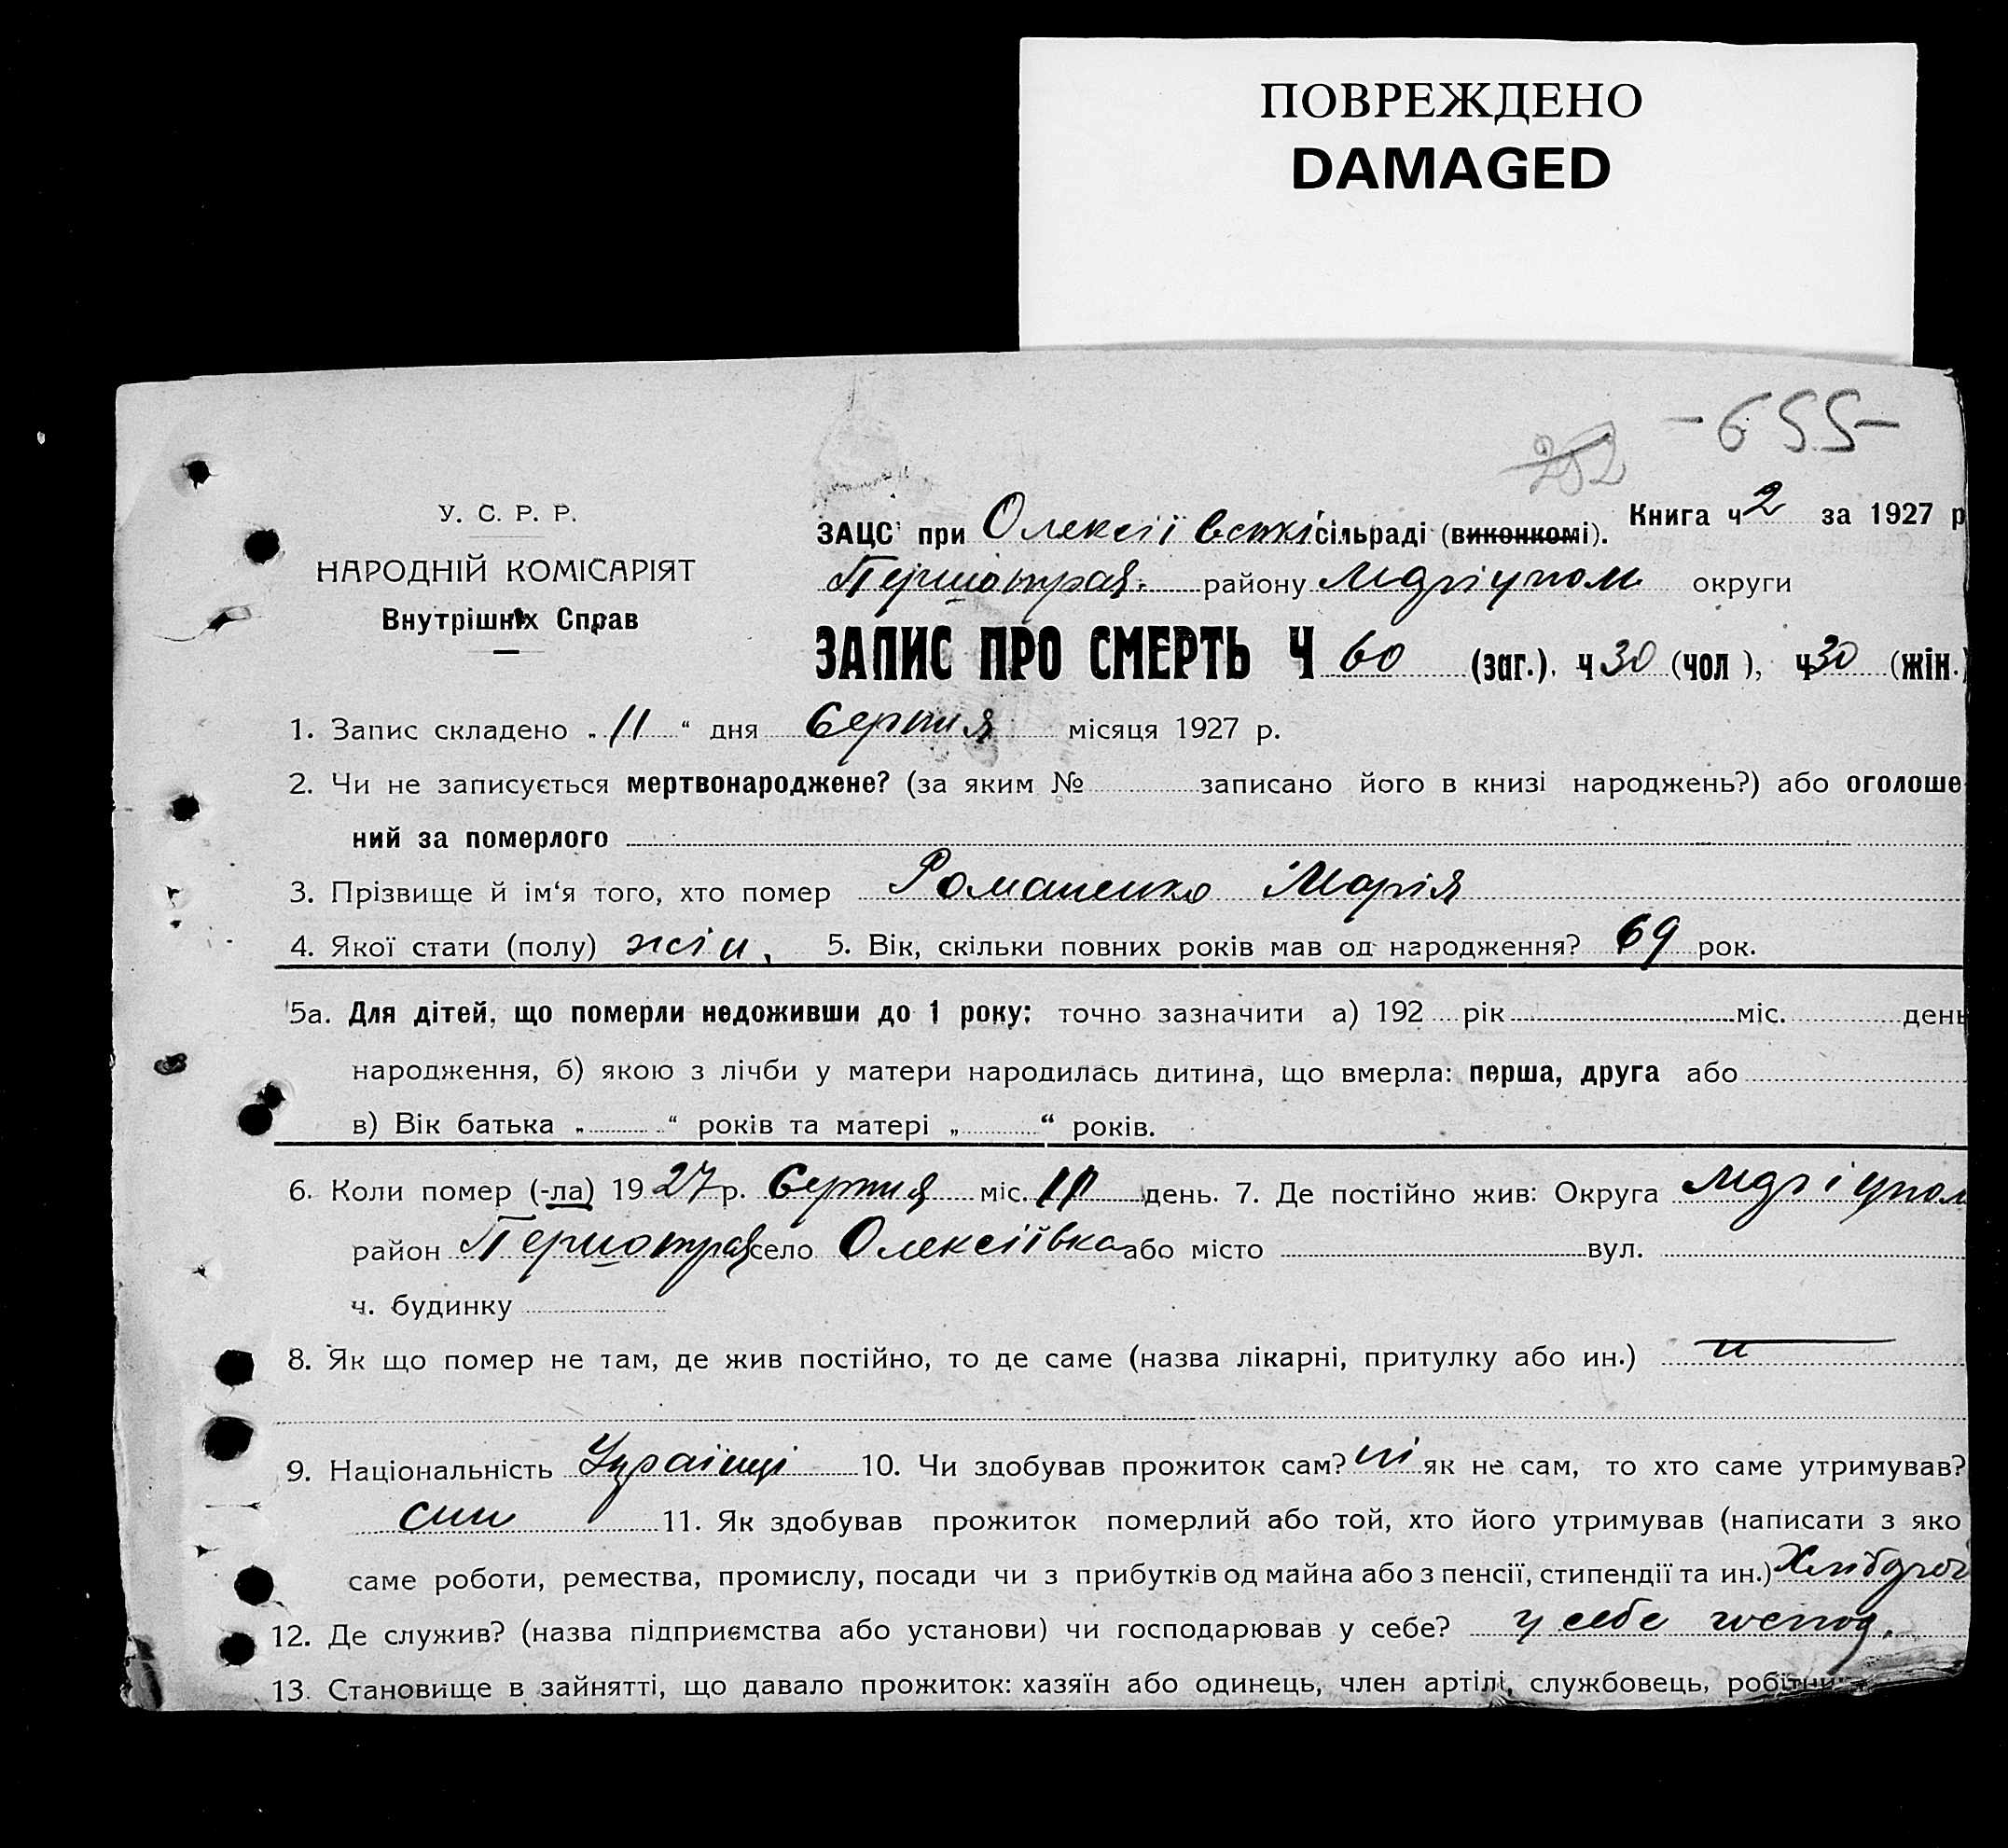 ПОВРЕЖДЕНО
DAMAGED
-655-
252
У. С. Р. Р.
НАРОДНІЙ КОМІСАРІЯТ
Внутрішніх Справ
Книга ч 2 за 1927 р
ЗАЦС при Олексіївські сільраді (виконкомі).
Першотрав. району Маріупол округи
ЗАПИС ПРО СМЕРТЬ Ч 60 (заг.), ч 30 (чол ), ч 30 (жін.)
1. Запис складено „ 11 “ дня Серпня місяця 1927 р.
2. Чи не записується мертвонароджене? (за яким № записано його в книзі народжень?) або оголоше-
ний за померлого
3. Прізвище й ім‘я того, хто помер Романенко Марія
4. Якої стати (полу) жін. 5. Вік, скільки повних років мав од народження? 69 рок.
5а. Для дітей, що померли недоживши до 1 року: точно зазначити а) 192 рік міс. день
народження, б) якою з лічби у матери народилась дитина, що вмерла: перша, друга або
в) Вік батька „ “ років та матері „ “ років.
6. Коли помер (-ла) 1927 р. Серпня міс. день. 7. Де постійно жив: Округа Маріупол
район Першотрав село Олексіївка або місто вул.
ч. будинку
8. Як що помер не там, де жив постійно, то де саме (назва лікарні, притулку або ин.)
9. Національність Українці 10. Чи здобував прожиток сам? ні як не сам, то хто саме утримував?
син 11. Як здобував прожиток померлий або той, хто його утримував (написати з яко
саме роботи, ремества, промислу, посади чи з прибутків од майна або з пенсії, стипендії та ин.) Хлібороб
12. Де служив? (назва підприємства або установи) чи господарював у себе? у себе господ.
13. Становище в зайнятті, що давало прожиток: хазяїн або одинець, член артілі, службовець, робітни